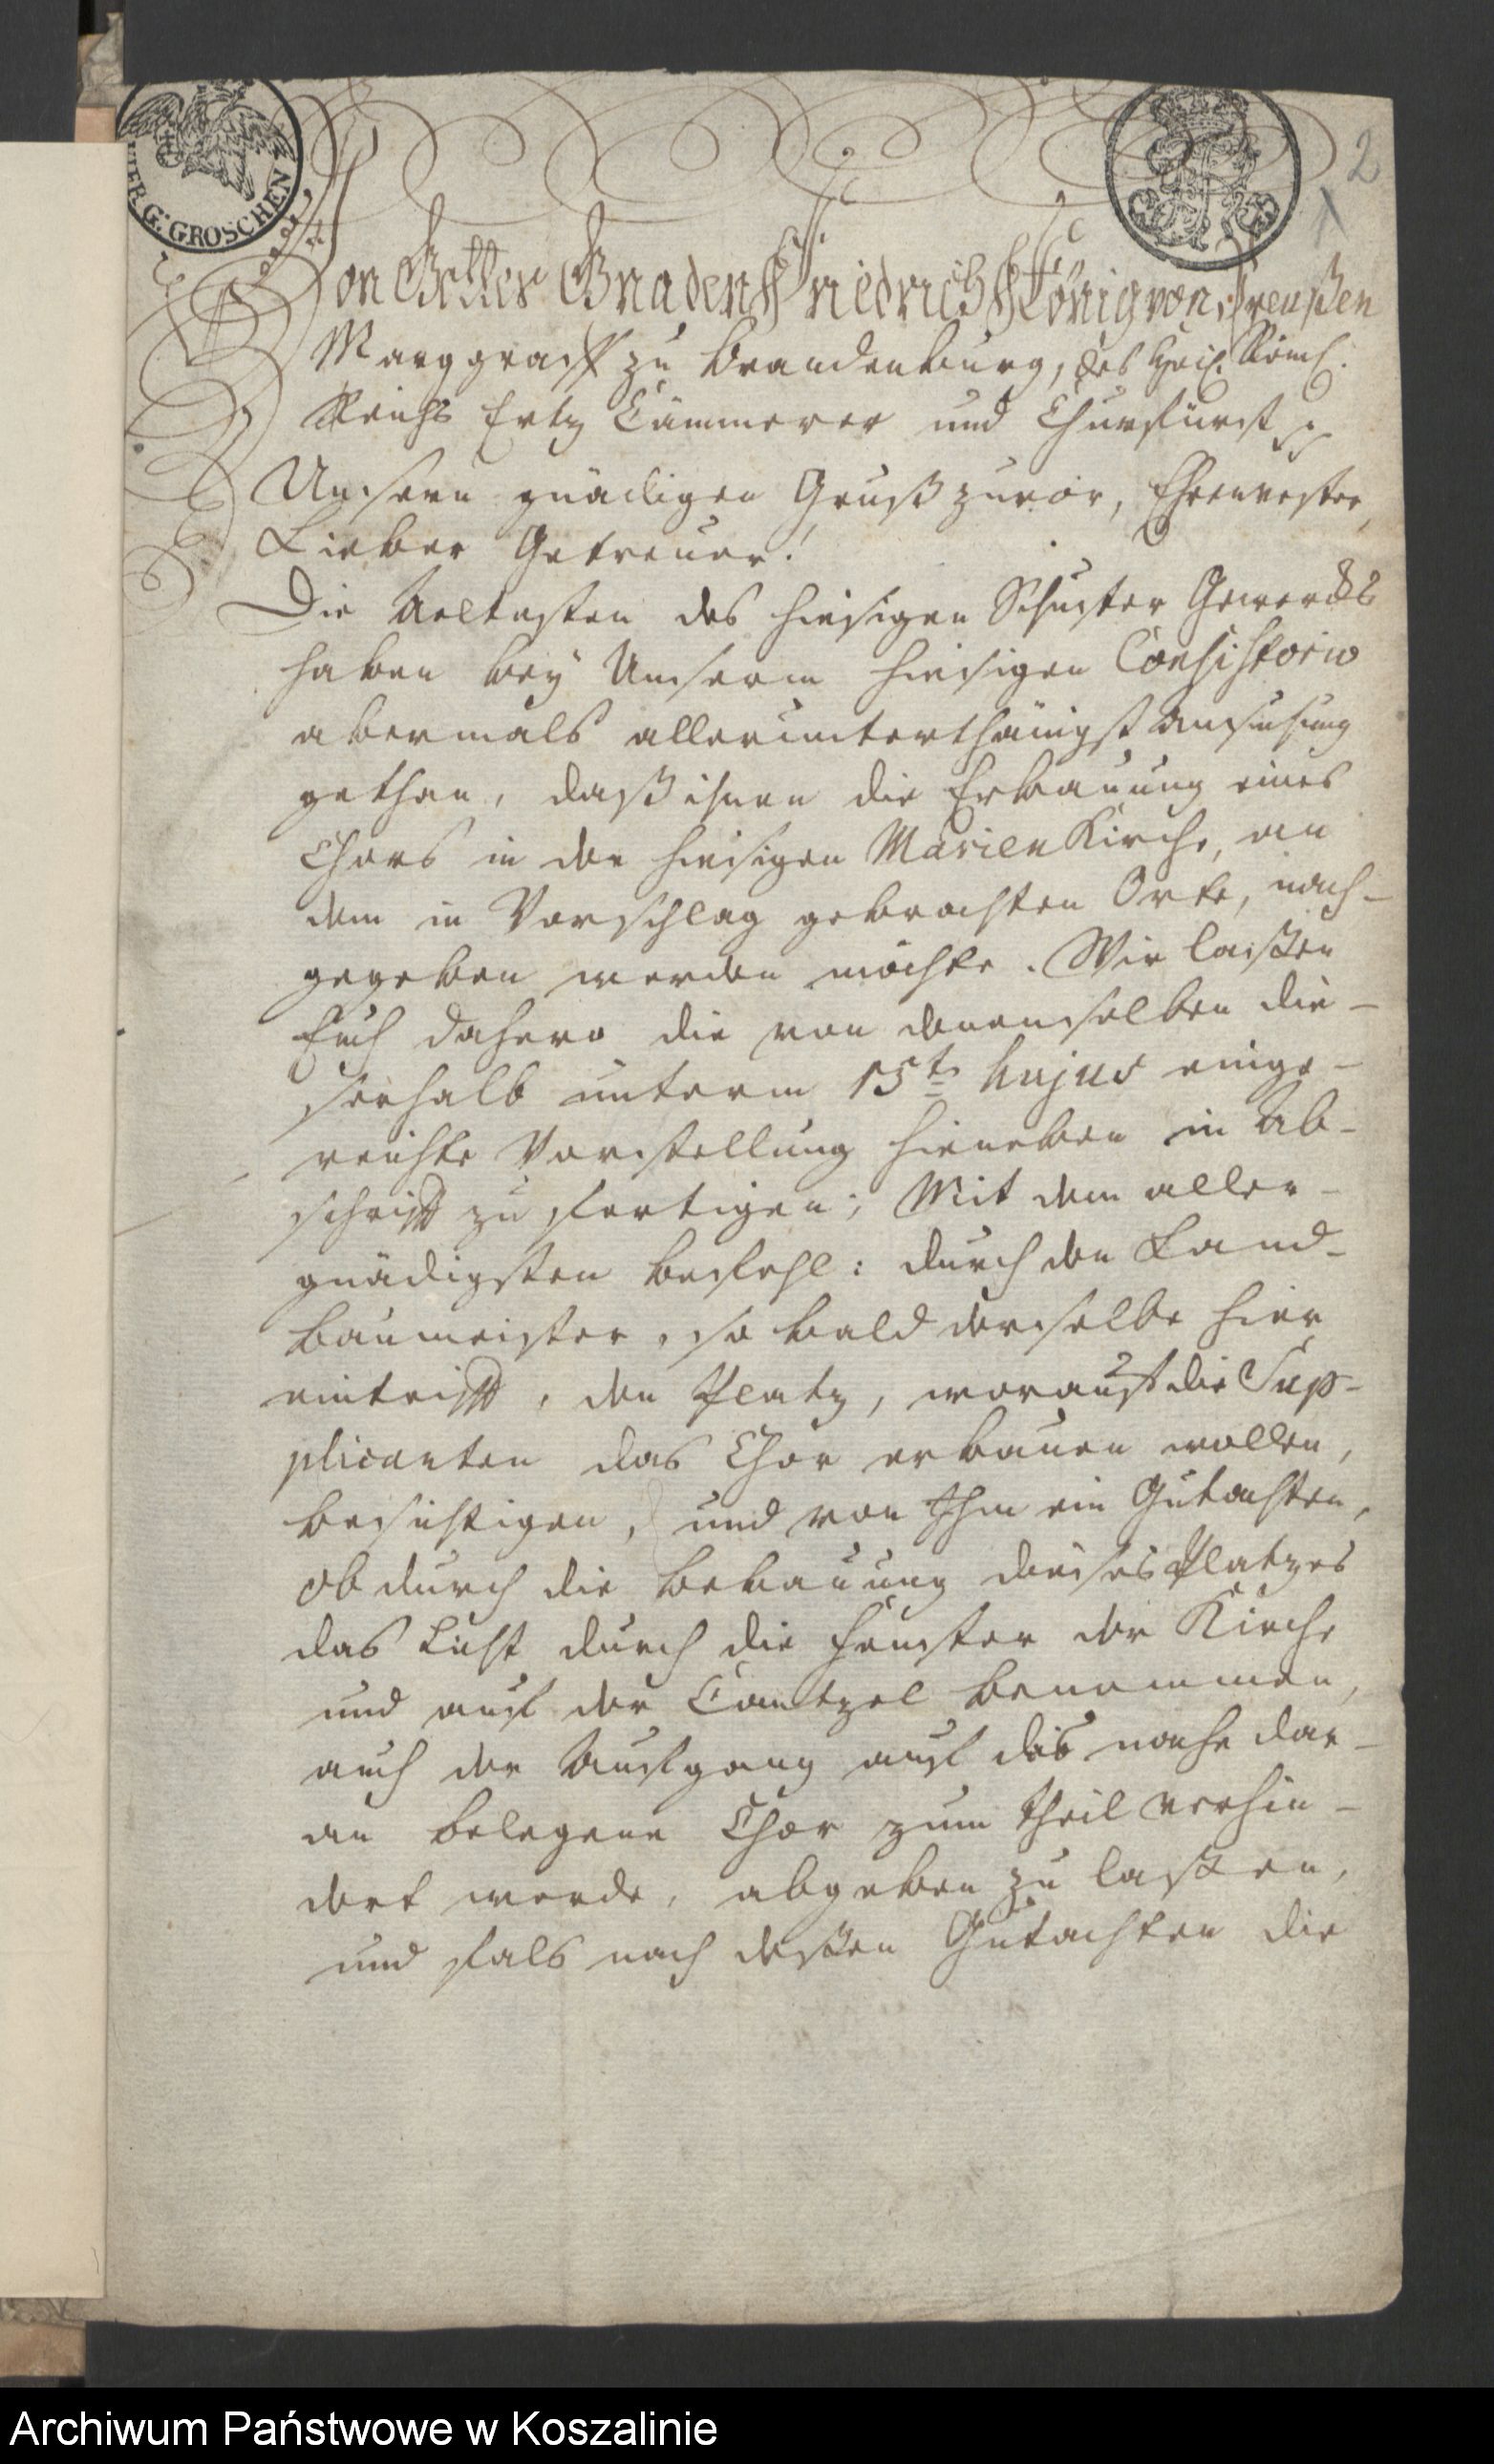 G: GROSCHEN
2
Von Gottes Gnaden Friedrich König von Preußen
Marggraff zu Brandenburg, des Heil. Röm.
Reichs Ertz Cämmerer und Churfürst
Unsern gnädigen Gruß zuvor, Ehrenvester,
Lieber Getreuer!
Die Aeltesten des hiesigen Schuster Gewercks
haben bey Unserm hiesigen Consistorio
abermals allerunterthänigst Ansuchung
gethan, daß ihnen die Erbauung eines
Chors in der hiesigen Marien Kirche, an
dem in Vorschlag gebrachten Orte, nach-
gegeben werden möchte. Wir laßen
Euch dahero die von denenselben die-
serhalb unterm 15t. hujus einge-
reichte Vorstellung hieneben in Ab-
schrifft zu fertigen; Mit dem aller-
gnädigsten Befehl: durch den Land-
baumeister, so bald derselbe hier
eintrifft, den Platz, worauf die Sup-
plicanten das Chor erbauen wollen,
besichtigen, und von Ihm ein Gutachten,
ob durch die Bebauung dieses Platzes
das Licht durch die Fenster der Kirche
und auf der Cantzel benommen,
auch der Aufgang auf das nahe dar-
an belegene Chor zum theil verhin-
dert werde, abgeben zu laßen,
und fals nach deßen Gutachten die
Archiwum Państwowe w Koszalinie